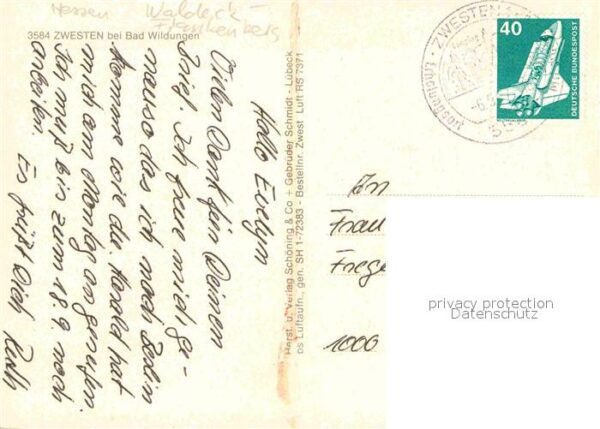 Hessen Waldeck-
Frankenberg
3584 ZWESTEN bei Bad Wildungen
Hallo Evelyn
Vielen Dank für Deinen
Brief. Ich freue mich ge-
nauso das ich nach Berlin
komme wie du. Harald hat
mich am Montag angerufen.
Ich muß bis zum 18.9. noch
arbeiten. Es grüßt Dich
Herst. u. Verlag Schöning & Co + Gebrüder Schmidt - Lübeck
os Luftaufn., gen. SH 1-72383 - Bestellnr. Zwest Luft RS 7371
ZWESTEN
40
DEUTSCHE BUNDESPOST
An
Frau
Frege
1000
privacy protection
Datenschutz